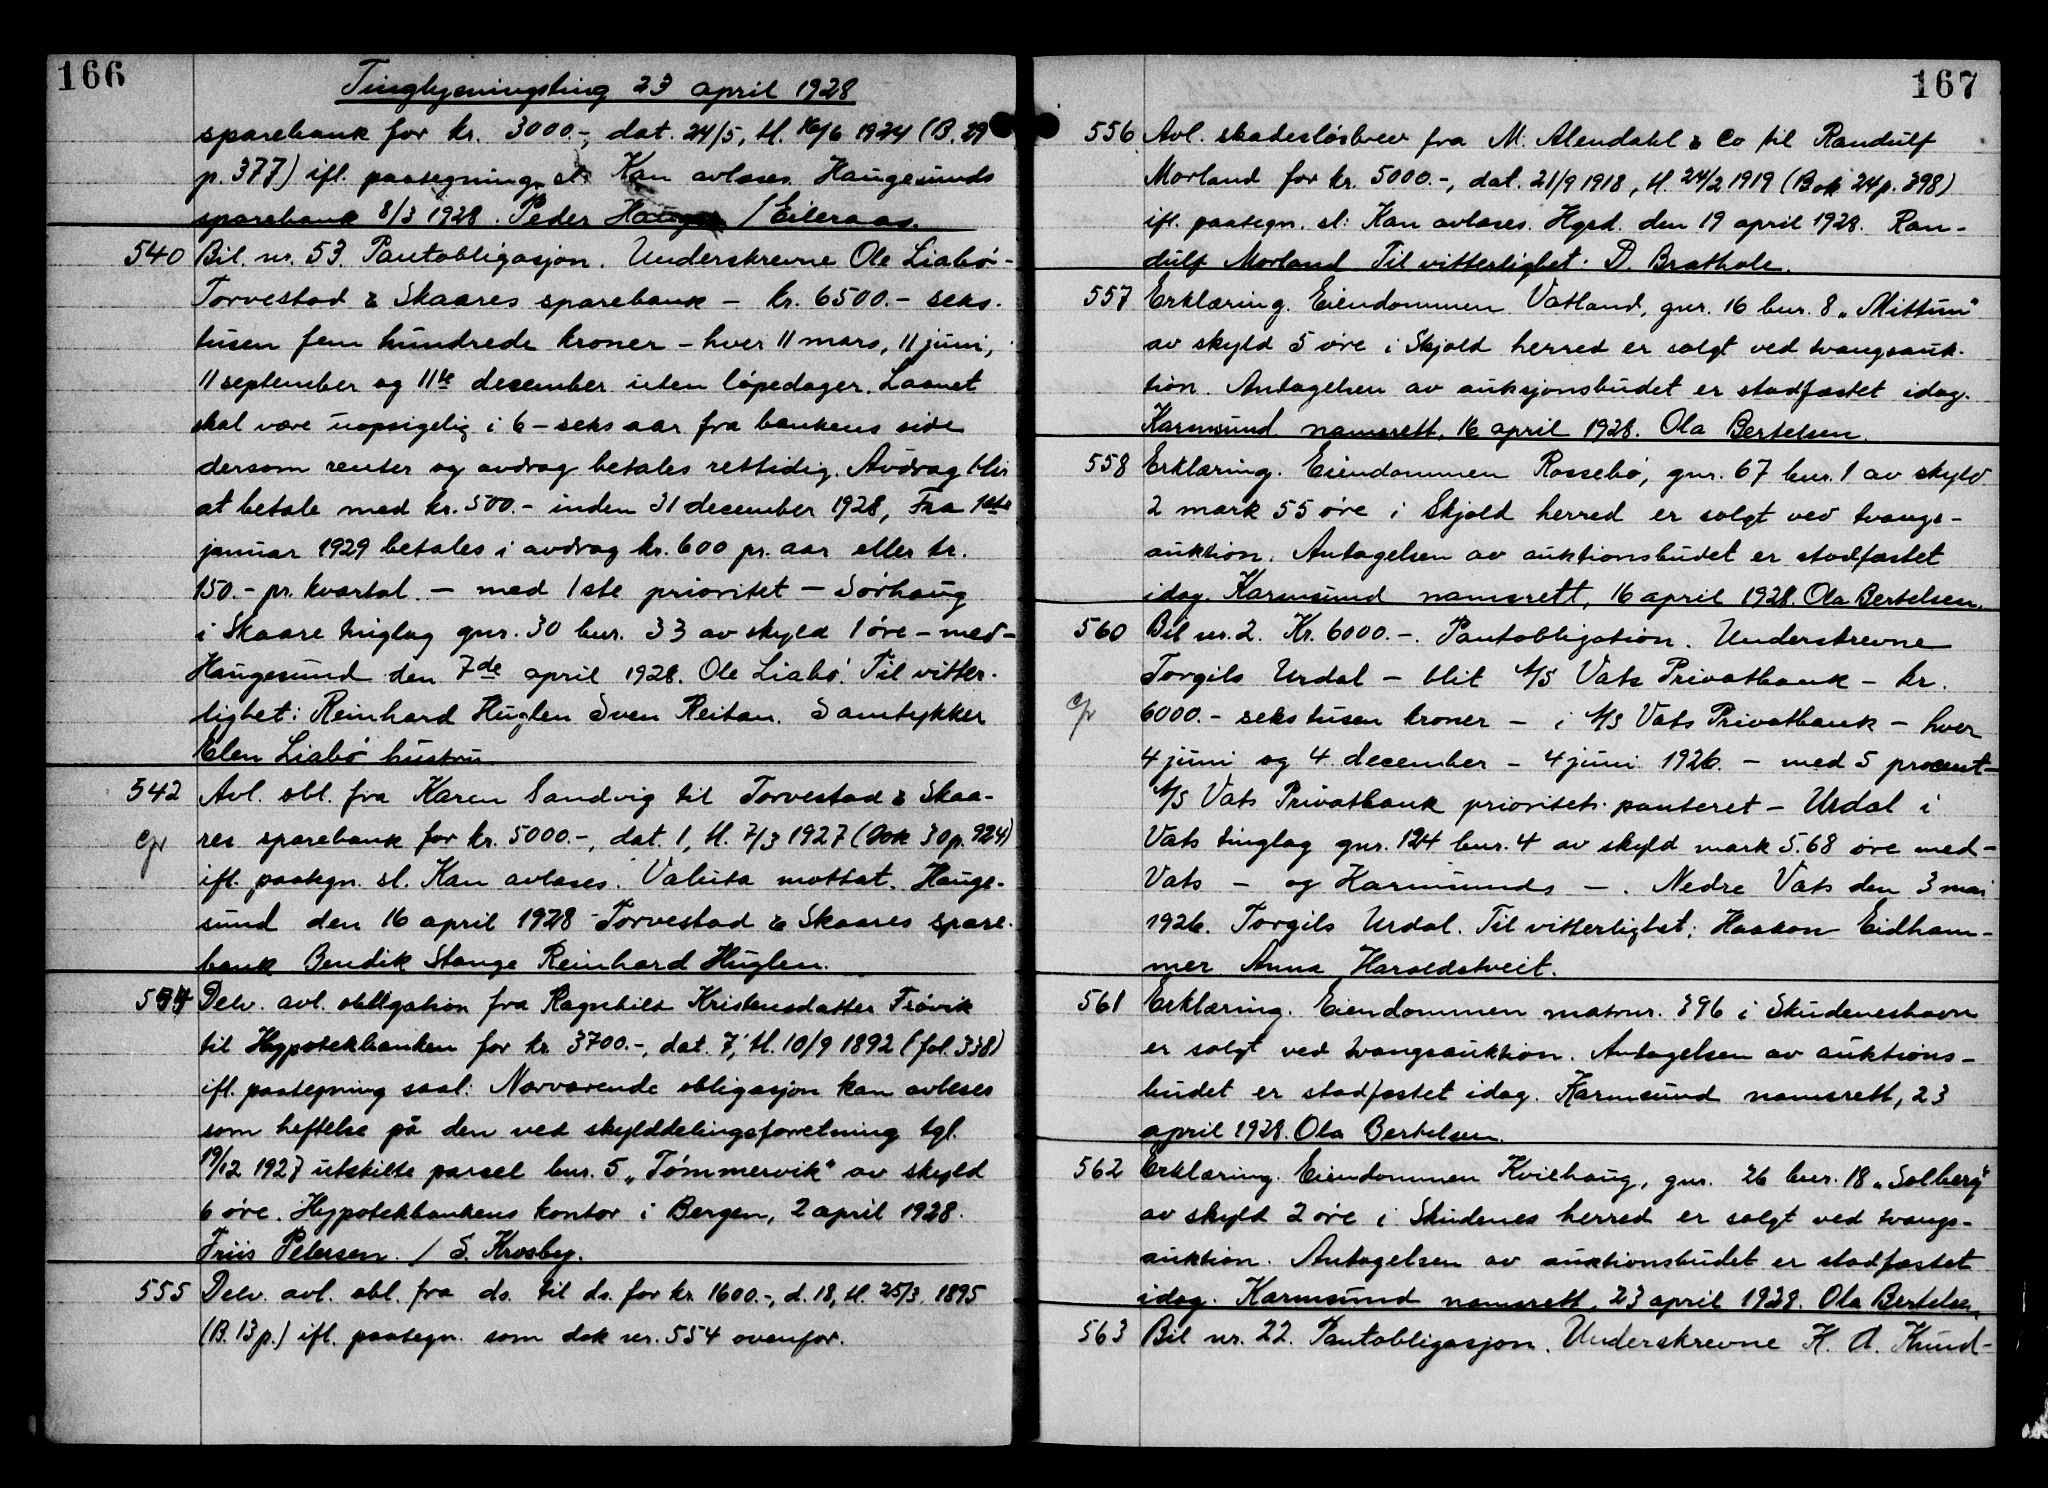 166
Tinglysningsting 23 april 1928
sparebank for kr. 3000.-, dat. 24/5, tl. 16/6 1924 (B. 29
p. 377) ifl. paategning sl: Kan avlæses. Haugesunds
sparebank 8/3 1928. Peder / Eileraas.
540 Bil. nr. 53. Pantobligasjon. Underskrevne Ole Liabö -
Torvestad & Skaares sparebank - kr. 6500.- seks-
tusen fem hundrede kroner - hver 11 mars, 11 juni,
11 september og 11te december uten löpedager. Laanet
skal være uopsigelig i 6 - seks aar fra bankens side
dersom renter og avdrag betales rettidig. Avdrag blir
at betale med kr. 500.- inden 31 december 1928, Fra 1ste
januar 1929 betales i avdrag kr. 600 pr. aar eller kr.
150.- pr. kvartal. - med 1ste prioritet - Sörhaug
i Skaare tinglag gnr. 30 bnr. 33 av skyld 1 öre - med -
Haugesund den 7de april 1928. Ole Liabö. Til vitter-
lighet: Reinhard Huglen Sven Reitan. Samtykker
Elen Liabö hustru
542 Avl. obl. fra Karen Sandvig til Torvestad & Skaa-
res sparebank for kr. 5000.-, dat. 1, tl. 7/3 1927 (Bok 30 p. 924)
ifl. paategn. sl. Kan avlæses. Valuta mottat. Hauge-
sund den 16 april 1928 Torvestad & Skaares spare-
bank Bendik Stange Reinhard Huglen.
554 Delv. avl. obligation fra Ragnhild Kristensdatter Frövik
til Hypotekbanken for kr. 3700.-, dat. 7, tl. 10/9 1892 (fol. 338)
ifl. paategning saal: Nærværende obligasjon kan avleses
som heftelse på den ved skylddelingsforretning tgl.
19/12 1927 utskilte parsel bnr. 5 „Tömmervik" av skyld
6 öre. Hypotekbankens kontor i Bergen, 2 april 1928.
Friis Petersen. / S. Krosby.
555 Delv. avl. obl. fra ds. til ds. for kr. 1600.-, d. 18, tl. 25/3 1895
(B. 13 p.) ifl. paategn. som dok nr. 554 ovenfor.
167
556 Avl. skadeslösbrev fra M. Alendahl & Co til Randulf
Morland for kr. 5000.-, dat. 21/9 1918, tl. 24/2 1919 (Bok 24 p. 398)
ifl. paategn. sl: Kan avlæses. Hgsd. den 19 april 1928. Ran-
dulf Morland Til vitterlighet: D. Brathole.
557 Erklæring. Eiendommen Vatland, gnr. 16 bnr. 8 „Mittun"
av skyld 5 öre i Skjold herred er solgt ved tvangsauk-
tion. Antagelsen av auksjonsbudet er stadfæstet idag.
Karmsund namsrett, 16 april 1928. Ola Bertelsen.
558 Erklæring. Eiendommen Rossebö, gnr. 67 bnr. 1 av skyld
2 mark 55 öre i Skjold herred er solgt ved tvangs-
auktion. Antagelsen av auktionsbudet er stadfæstet
idag. Karmsund namsrett, 16 april 1928. Ola Bertelsen.
560 Bil nr. 2. Kr. 6000.-. Pantobligation. Underskrevne
Torgils Urdal - blit A/S Vats Privatbank - kr.
6000.- seks tusen kroner - i A/S Vats Privatbank - hver
4 juni og 4. december - 4 juni 1926. - med 5 procent -
A/S Vats Privatbank prioritets panteret - Urdal i
Vats tinglag gnr. 124 bnr. 4 av skyld mark 5.68 öre med -
Vats - og Karmsunds - . Nedre Vats den 3 mai
1926. Torgils Urdal. Til vitterlighet: Haakon Eidham-
mer Anna Haroldstveit.
561 Erklæring. Eiendommen matrnr. 396 i Skudeneshavn
er solgt ved tvangsauktion. Antagelsen av auktions-
budet er stadfæstet idag. Karmsund namsrett, 23
april 1928. Ola Bertelsen.
562 Erklæring. Eiendommen Kvilhaug, gnr. 26 bnr. 18 „Solberg"
av skyld 2 öre i Skudenes herred er solgt ved tvangs-
auktion. Antagelsen av auktionsbudet er stadfæstet
idag. Karmsund namsrett, 23 april 1928. Ola Bertelsen.
563 Bil nr. 22. Pantobligasjon. Underskrevne K. A. Knud-